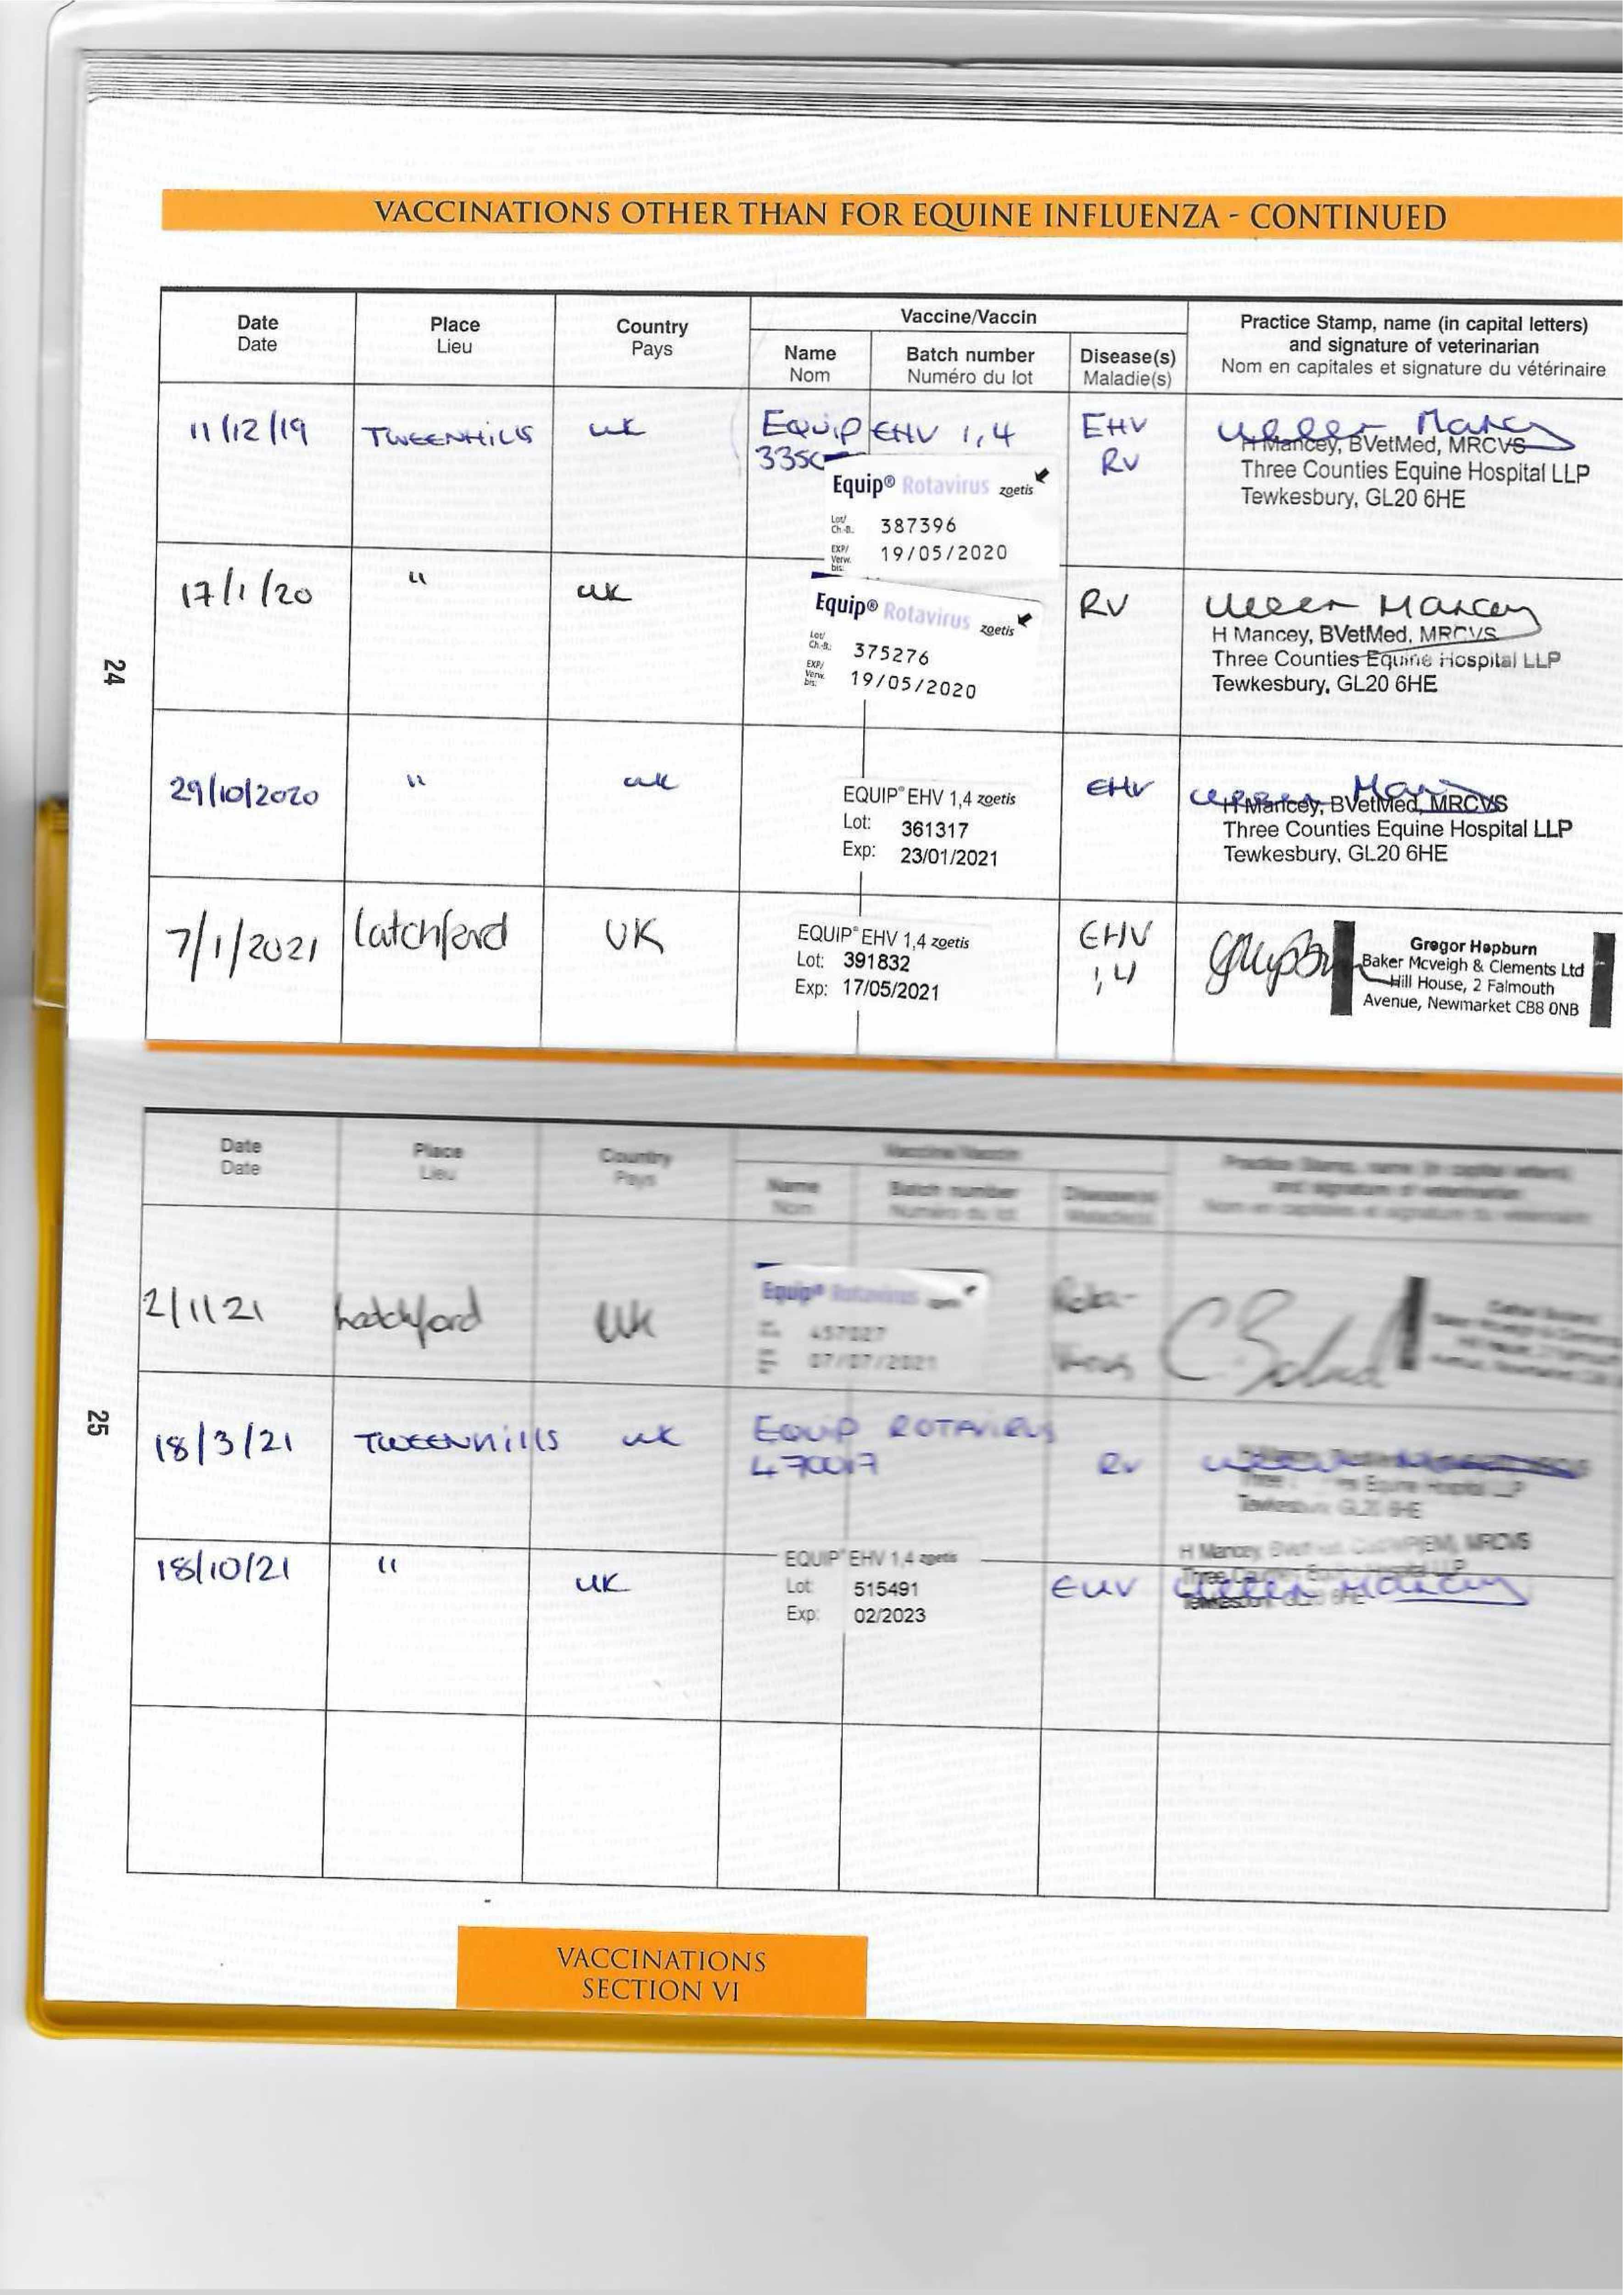 VACCINATIONS OTHER THAN FOR EQUINE INFLUENZA - CONTINUED
Date
Date
Place
Lieu
Country
Pays
Vaccine/Vaccin
Name
Nom
Batch number
Numéro du lot
Disease(s)
Maladie(s)
Practice Stamp, name (in capital letters)
and signature of veterinarian
Nom en capitales et signature du vétérinaire
11/12/19 TWEENHILLS UK EQUIP EHV 1,4 EHV
RV
H Mancey, BVetMed, MRCVS
Three Counties Equine Hospital LLP
Tewkesbury, GL20 6HE
Equip® Rotavirus zoetis
Lot/
Ch.-B. 387396
EXP/
Verw.
bis: 19/05/2020
17/1/20 " UK RV
Equip® Rotavirus zoetis
Lot/
Ch.-B.: 375276
EXP/
Verw.
bis: 19/05/2020
H Mancey, BVetMed, MRCVS
Three Counties Equine Hospital LLP
Tewkesbury, GL20 6HE
24
29/10/2020 " UK EHV
EQUIP® EHV 1,4 zoetis
Lot: 361317
Exp: 23/01/2021
H Mancey, BVetMed, MRCVS
Three Counties Equine Hospital LLP
Tewkesbury, GL20 6HE
7/1/2021 Latchford UK EHV
1,4
EQUIP® EHV 1,4 zoetis
Lot: 391832
Exp: 17/05/2021
Gregor Hepburn
Baker Mcveigh & Clements Ltd
Hill House, 2 Falmouth
Avenue, Newmarket CB8 0NB
Date
Date
Place
Lieu
Country
Pays
Vaccine/Vaccin
Name
Nom
Batch number
Numéro du lot
Disease(s)
Maladie(s)
Practice Stamp, name (in capital letters)
and signature of veterinarian
Nom en capitales et signature du vétérinaire
2/11/21 Latchford UK Rota-
Virus
Equip® Rotavirus
457027
07/07/2021
25
18/3/21 TWEENHILLS UK EQUIP ROTAVIRUS
RV
Equine Hospital LLP
Tewkesbury GL20 6HE
18/10/21 " UK EHV
EQUIP® EHV 1,4 zoetis
Lot: 515491
Exp: 02/2023
H Mancey, MRCVS
VACCINATIONS
SECTION VI